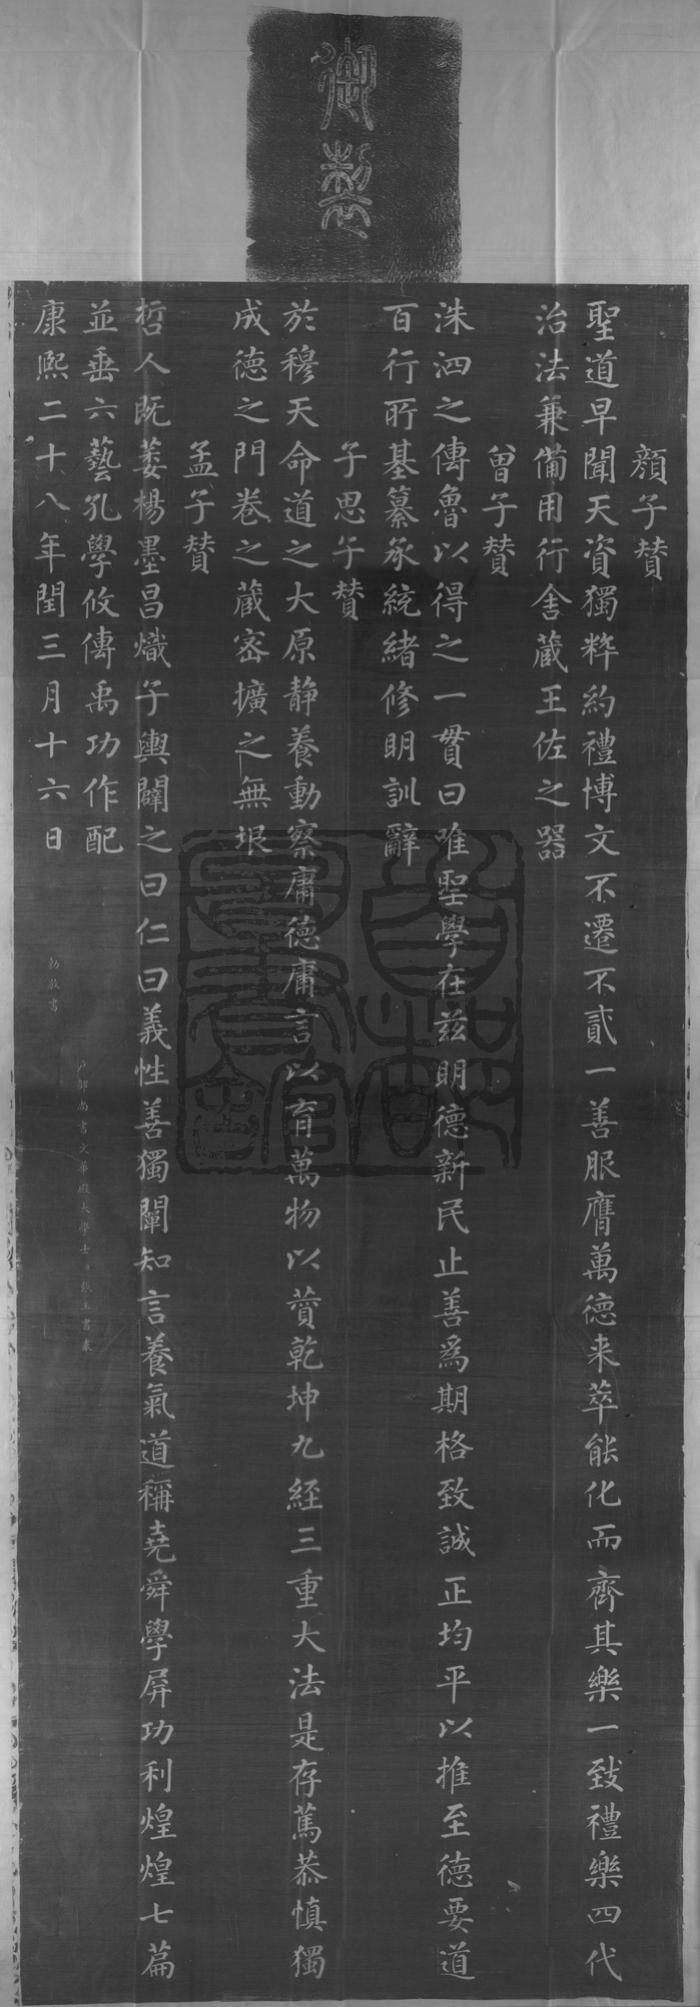 御製
顏子贊
聖道早聞天資獨粹約禮博文不遷不貳一善服膺萬德来萃能化而齊其樂一致禮樂四代
治法兼備用行舍蔵王佐之器
曾子贊
洙泗之傳魯以得之一貫曰唯聖學在兹明德新民止善爲期格致誠正均平以推至德要道
百行所基纂承統緒修明訓辭
子思子贊
於穆天命道之大原静養動察庸德庸言以育萬物以贊乾坤九經三重大法是存篤恭慎獨
成德之門卷之蔵密擴之無垠
孟子贊
哲人既萎楊墨昌熾子輿闢之曰仁曰義性善獨闡知言養氣道稱堯舜學屏功利煌煌七篇
並垂六藝孔學攸傳禹功作配
康熙二十八年閏三月十六日
户部尚書文華殿大學士張玉書奉
勅敬書